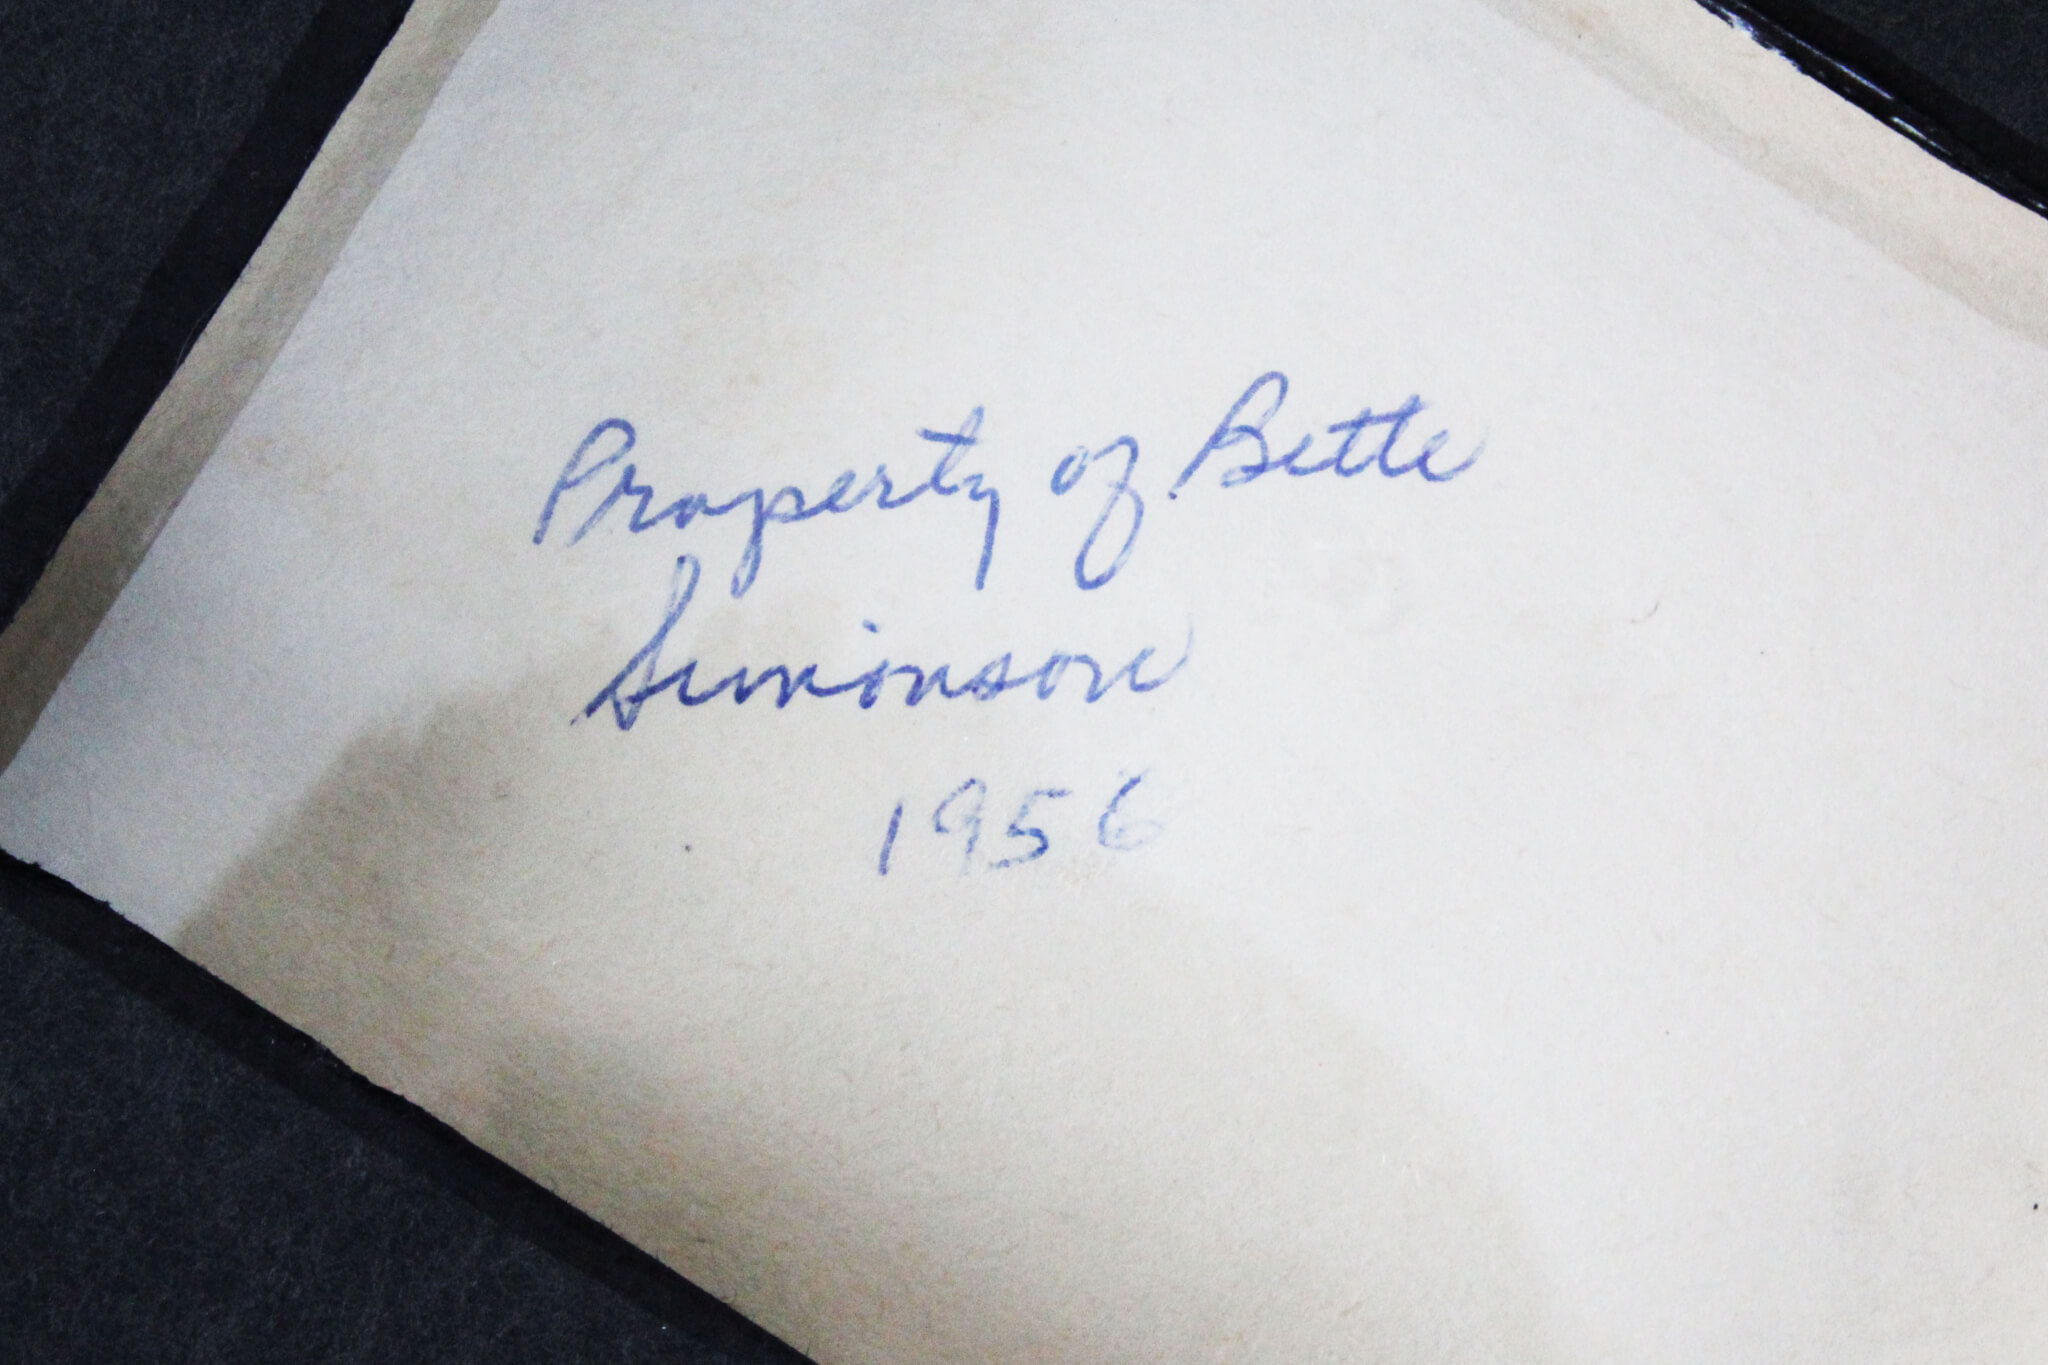 Property of Bette
Simonson
1956